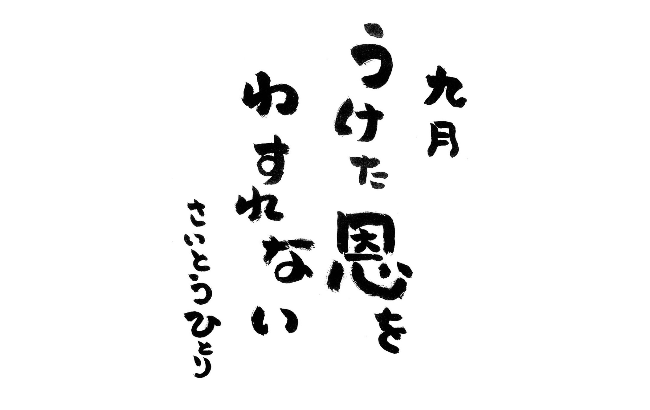 九月
うけた恩を
わすれない
さいとうひとり